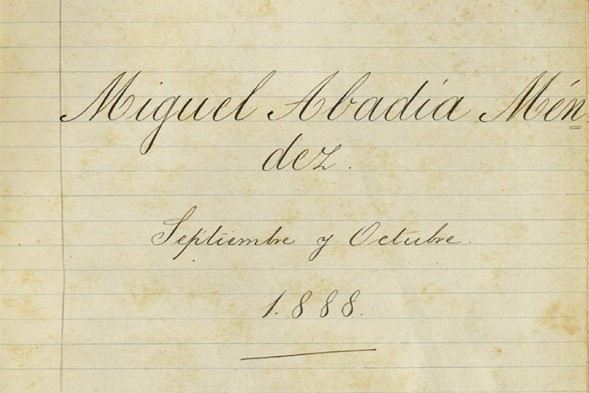 Miguel Abadía Mén
dez.
Septiembre y Octubre.
1.888.